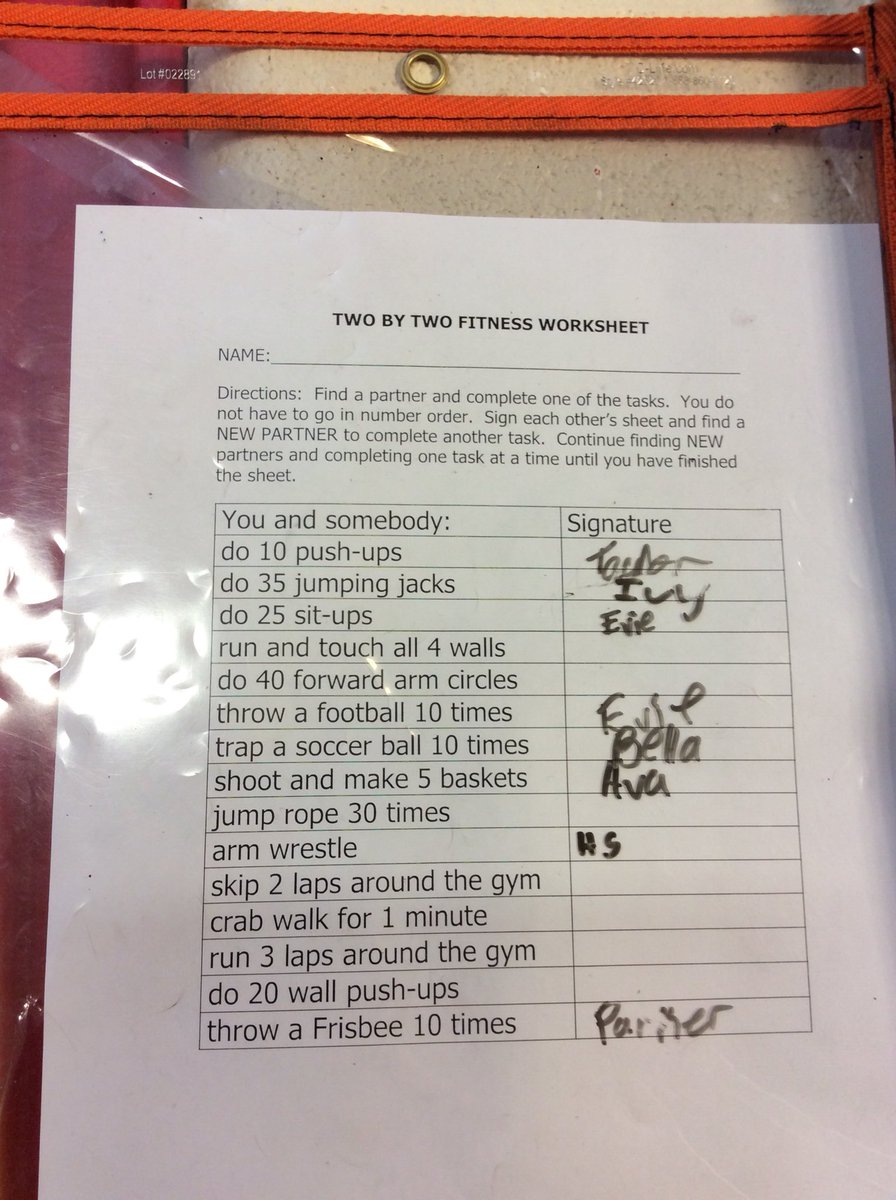 Lot #022891
TWO BY TWO FITNESS WORKSHEET
NAME:
Directions: Find a partner and complete one of the tasks. You do
not have to go in number order. Sign each other's sheet and find a
NEW PARTNER to complete another task. Continue finding NEW
partners and completing one task at a time until you have finished
the sheet.
You and somebody: Signature
do 10 push-ups
do 35 jumping jacks Ivy
do 25 sit-ups Evie
run and touch all 4 walls
do 40 forward arm circles
throw a football 10 times
trap a soccer ball 10 times Bella
shoot and make 5 baskets Ava
jump rope 30 times
arm wrestle HS
skip 2 laps around the gym
crab walk for 1 minute
run 3 laps around the gym
do 20 wall push-ups
throw a Frisbee 10 times Parker